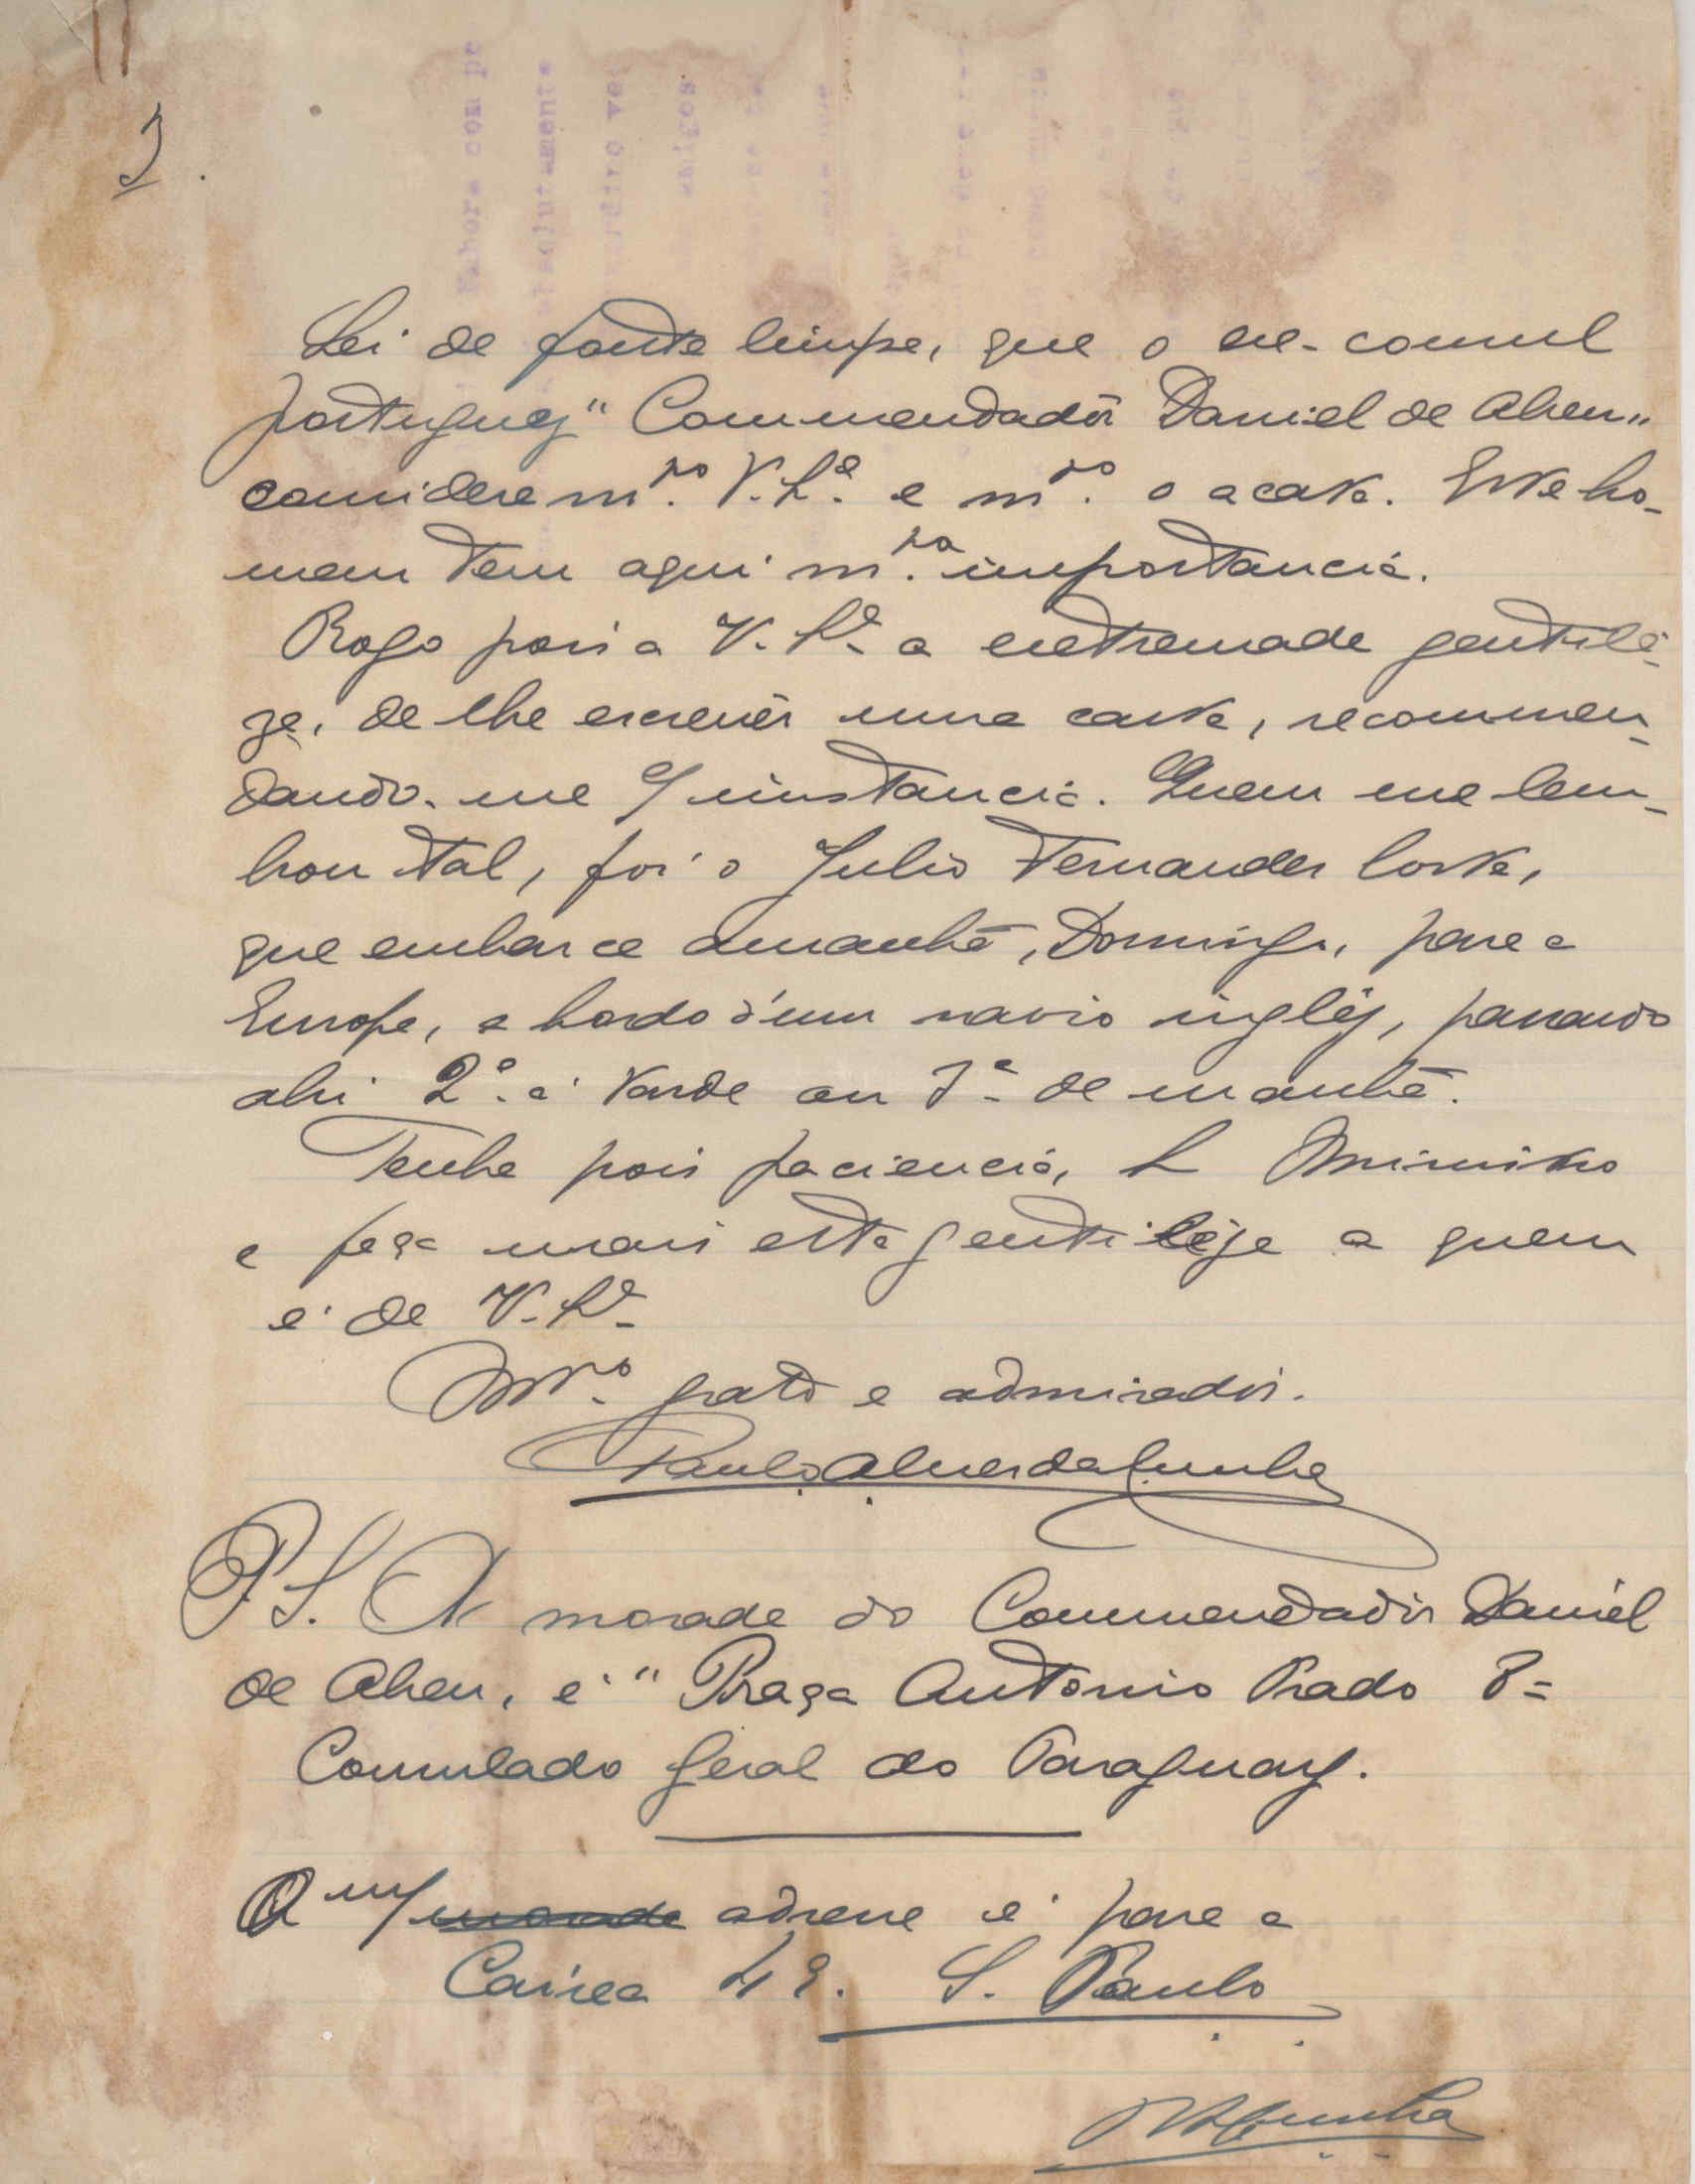 3.
Sei de fonte limpa, que o ex-consul
portuguez "Commendador Daniel de Abreu"
considera m.to V. S.ª e m.to o acata. Este ho-
mem tem aqui m.ta importancia.
Rogo pois a V. S.ª a extremada gentile-
za, de lhe escrever uma carta, recommen-
dando-me c/ instancia. Quem me lem-
brou tal, foi o Julio Fernandes Costa,
que embarca amanhã, Domingo, para a
Europa, a bordo d'um navio inglêz, passando
ahi 2.ª á tarde ou 3.ª de manhã.
Tenha pois paciencia, S. Ministro
e faça mais esta gentileza a quem
é de V. S.ª
M.to grato e admirador.
Paulo Alves da Cunha
P.S. A morada do Commendador Daniel
de Abreu, é "Praça Antonio Prado 8=
Consulado geral do Paraguay.
A m/ morada adresse é para a
Caixa 49. S. Paulo
PACunha